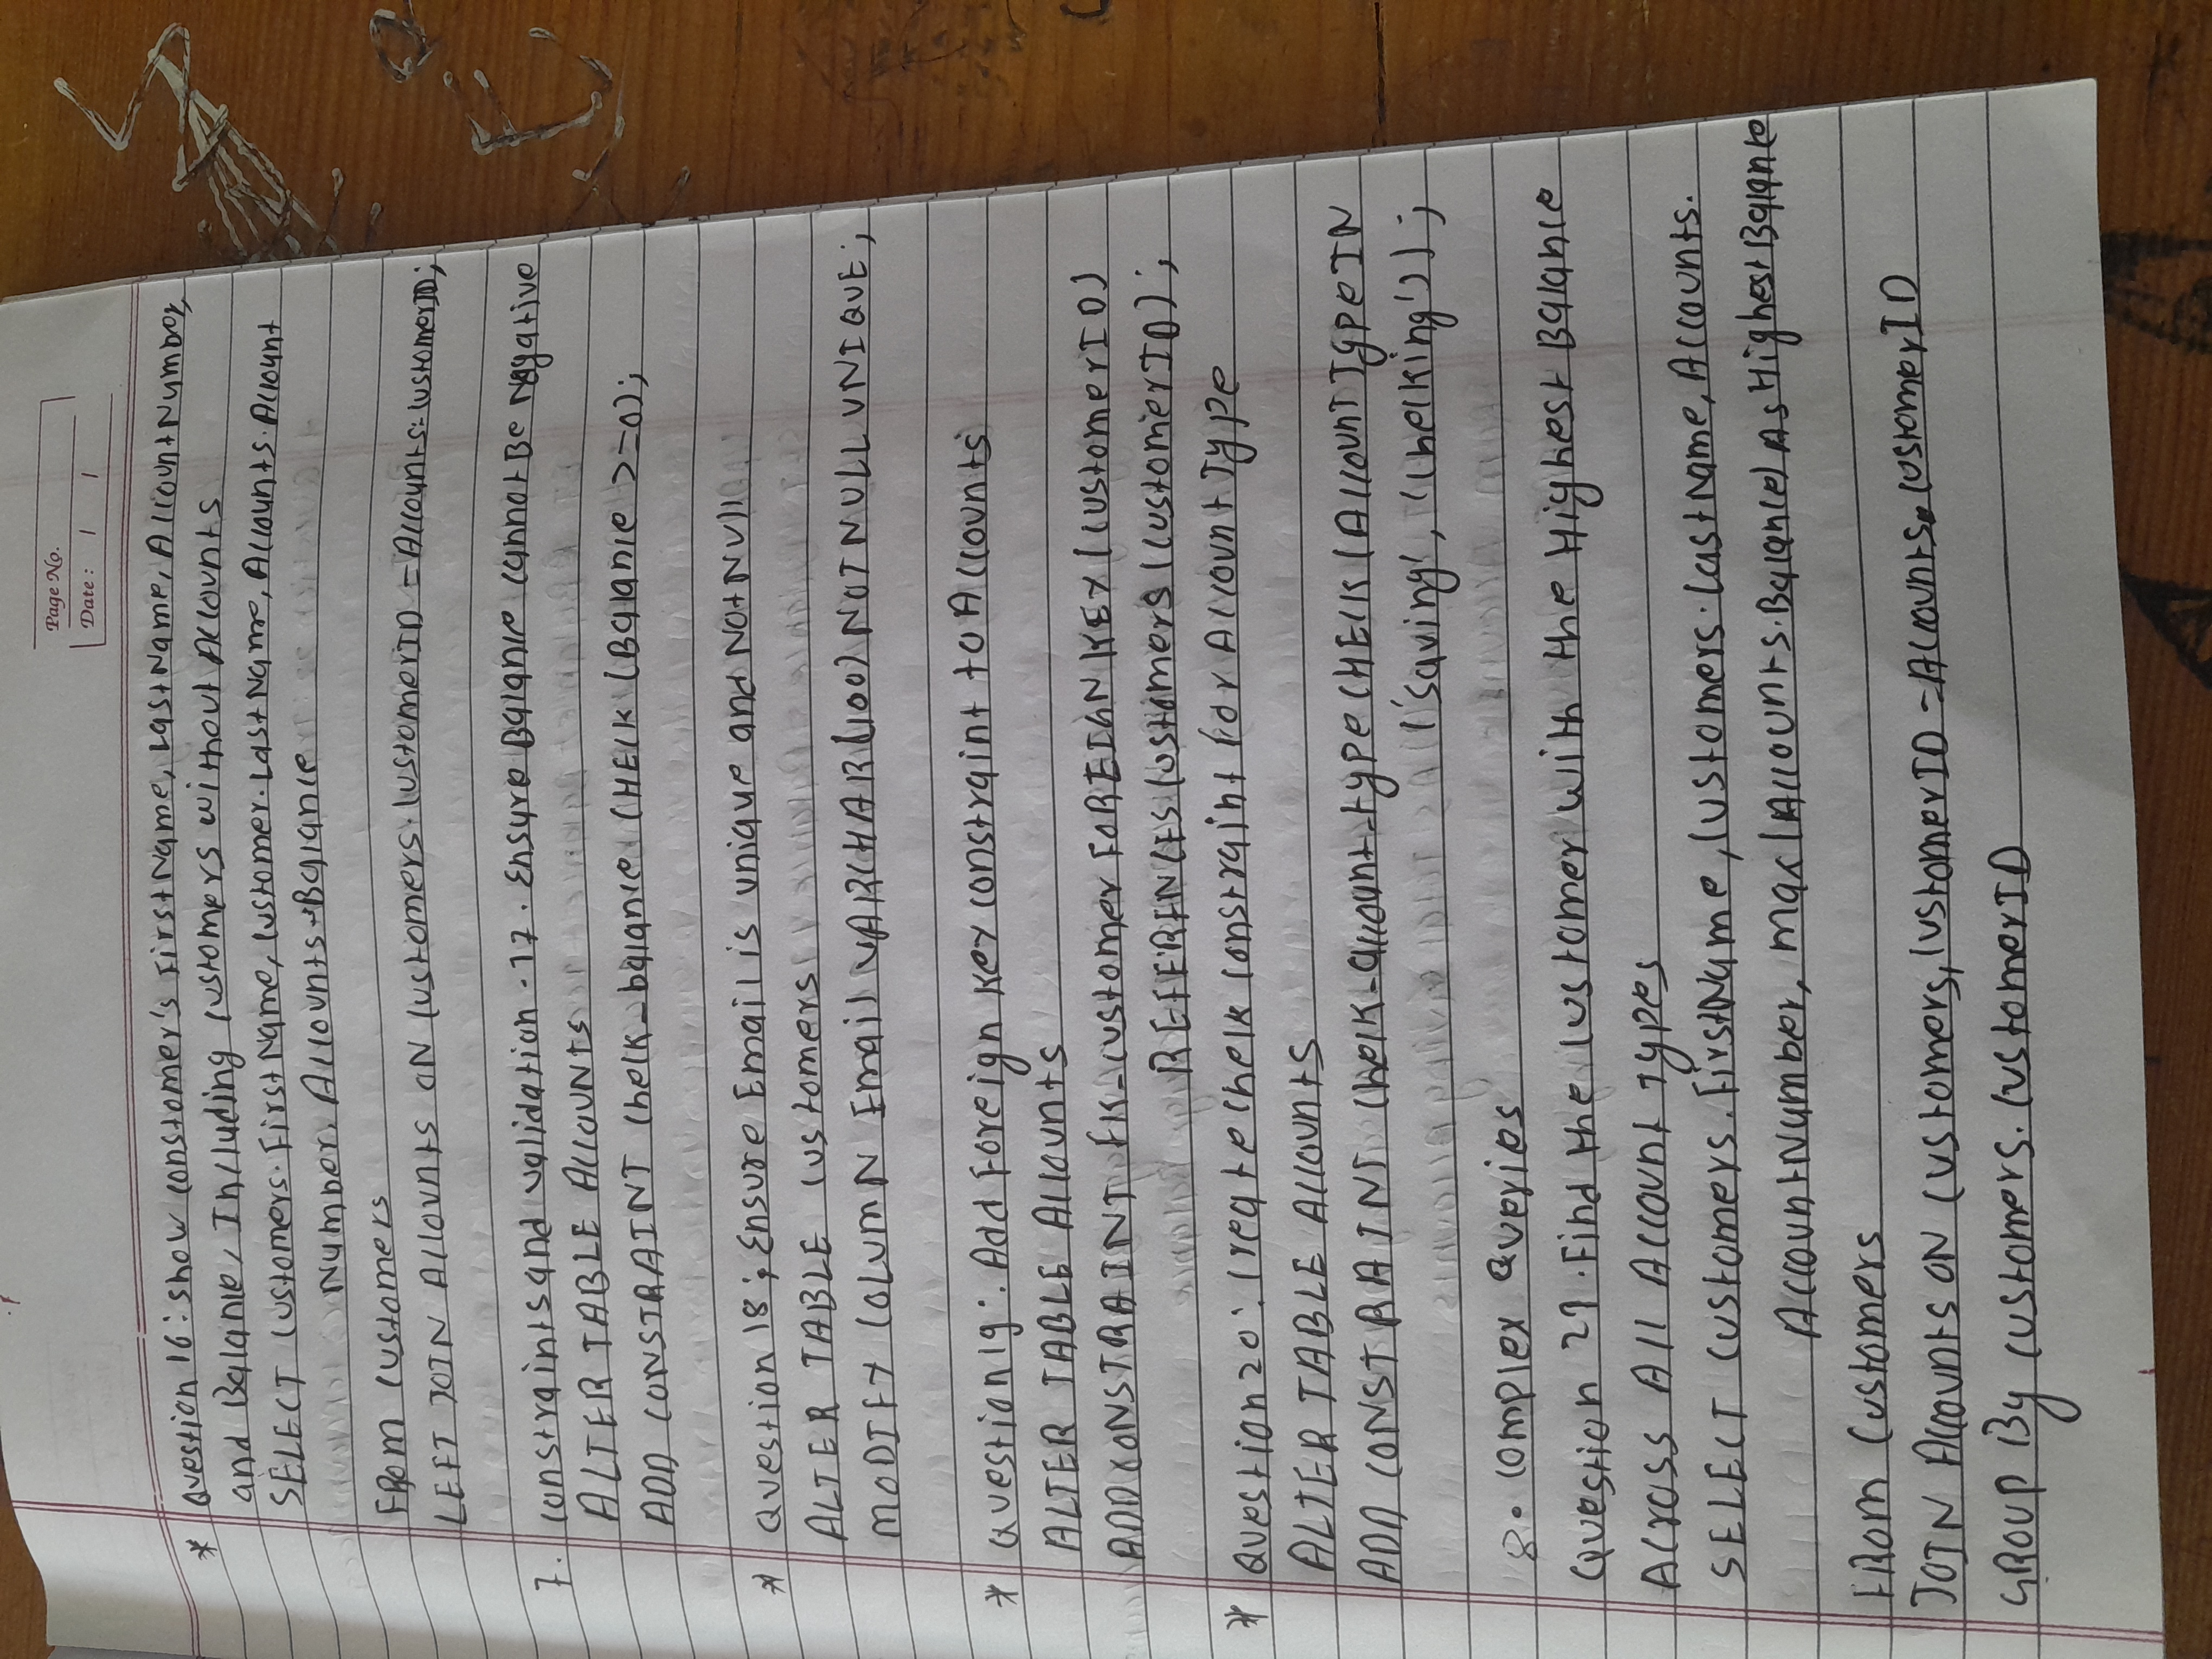 Page No.
Date :
* Question 16: show constomer's FirstName, LastName, AccountNumber,
and Balance, Including customers without Accounts
SELECT Customers. FirstName, Customer. LastName, Accounts. Account
Number, Accounts. Balance
FROM Customers
LEFT JOIN Accounts ON Customers. CustomerID = Accounts. CustomerID;
7. constraints and validation - 17. Ensure Balance cannot Be Negative
ALTER TABLE Accounts
ADD CONSTRAINT Check_balance CHECK (Balance >=0);
* Question 18; Ensure Email is unique and Not Null
ALTER TABLE Customers
MODIFY COLUMN Email VARCHAR(100) NOT NULL UNIQUE;
* Question 19: Add Foreign Key constraint to Accounts
ALTER TABLE Accounts
ADD CONSTRAINT FK_Customer FOREIGN KEY (CustomerID)
REFERENCES Customers (CustomerID);
* Question 20: Create Check Constraint for Account Type
ALTER TABLE Accounts
ADD CONSTRAINT Check_account_type CHECK (Account Type IN
('Saving', 'Checking'));
8. Complex Queries
Question 21. Find the Customer with the Highest Balance
Across All Account Types
SELECT Customers. FirstName, Customers. LastName, Accounts.
AccountNumber, max(Accounts.Balance) AS HighestBalance
FROM Customers
JOIN Accounts ON Customers, CustomerID = Accounts. CustomerID
GROUP By Customers. CustomerID